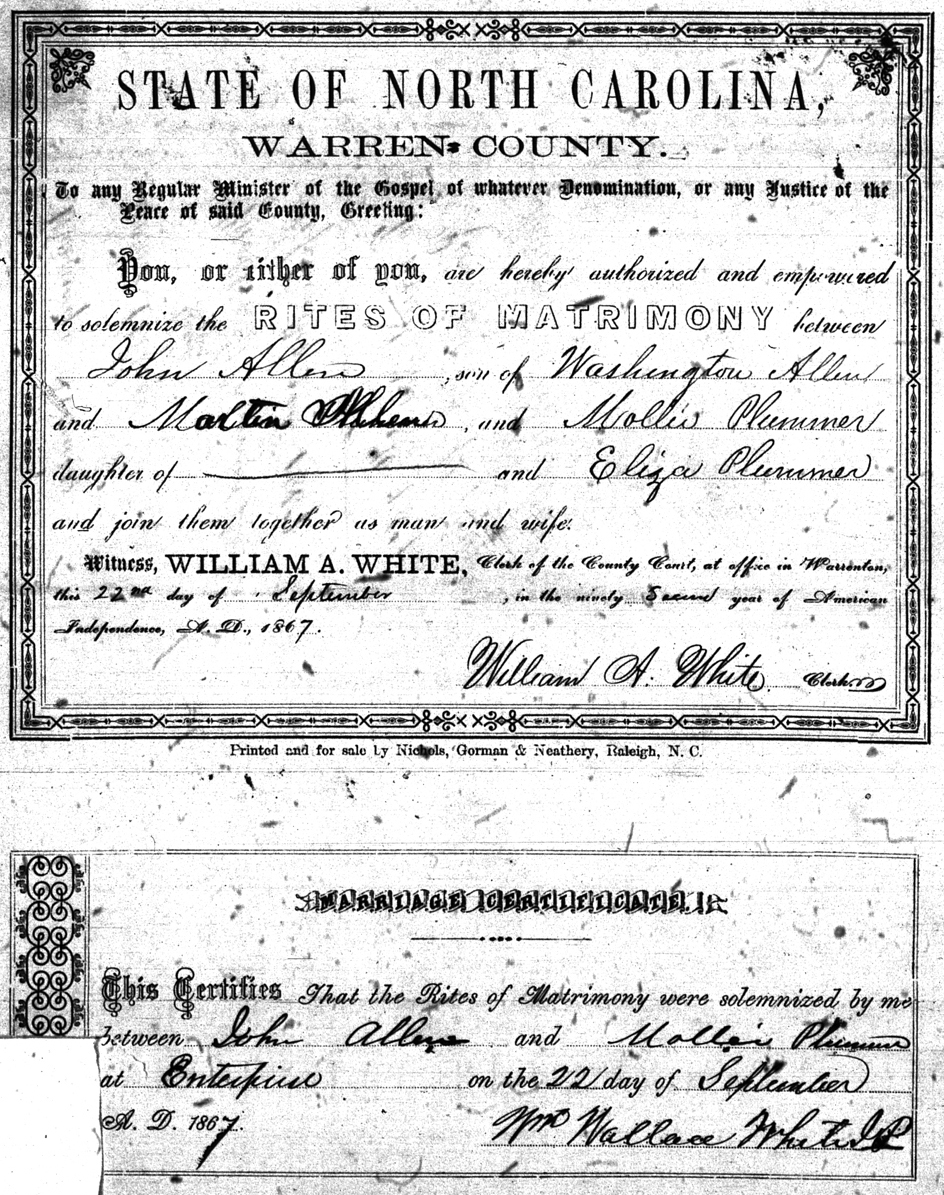 STATE OF NORTH CAROLINA,
WARREN COUNTY.
To any Regular Minister of the Gospel, of whatever Denomination, or any Justice of the
Peace of said County, Greeting:
You, or either of you, are hereby authorized and empowered
to solemnize the RITES OF MATRIMONY between
John Allen, son of Washington Allen
and, and Mollie Plummer
daughter of and Eliza Plummer
and join them together as man and wife.
Witness, WILLIAM A. WHITE, Clerk of the County Court, at office in Warrenton,
this 22nd day of September, in the ninety Second year of American
Independence, A. D., 1867.
William A. White Clerk
Printed and for sale by Nichols, Gorman & Neathery, Raleigh, N. C.
MARRIAGE CERTIFICATE.
This Certifies That the Rites of Matrimony were solemnized by me
between John Allen and Mollie Plummer
at Enterprise on the 22 day of September
A. D. 1867.
Wm Wallace White J P